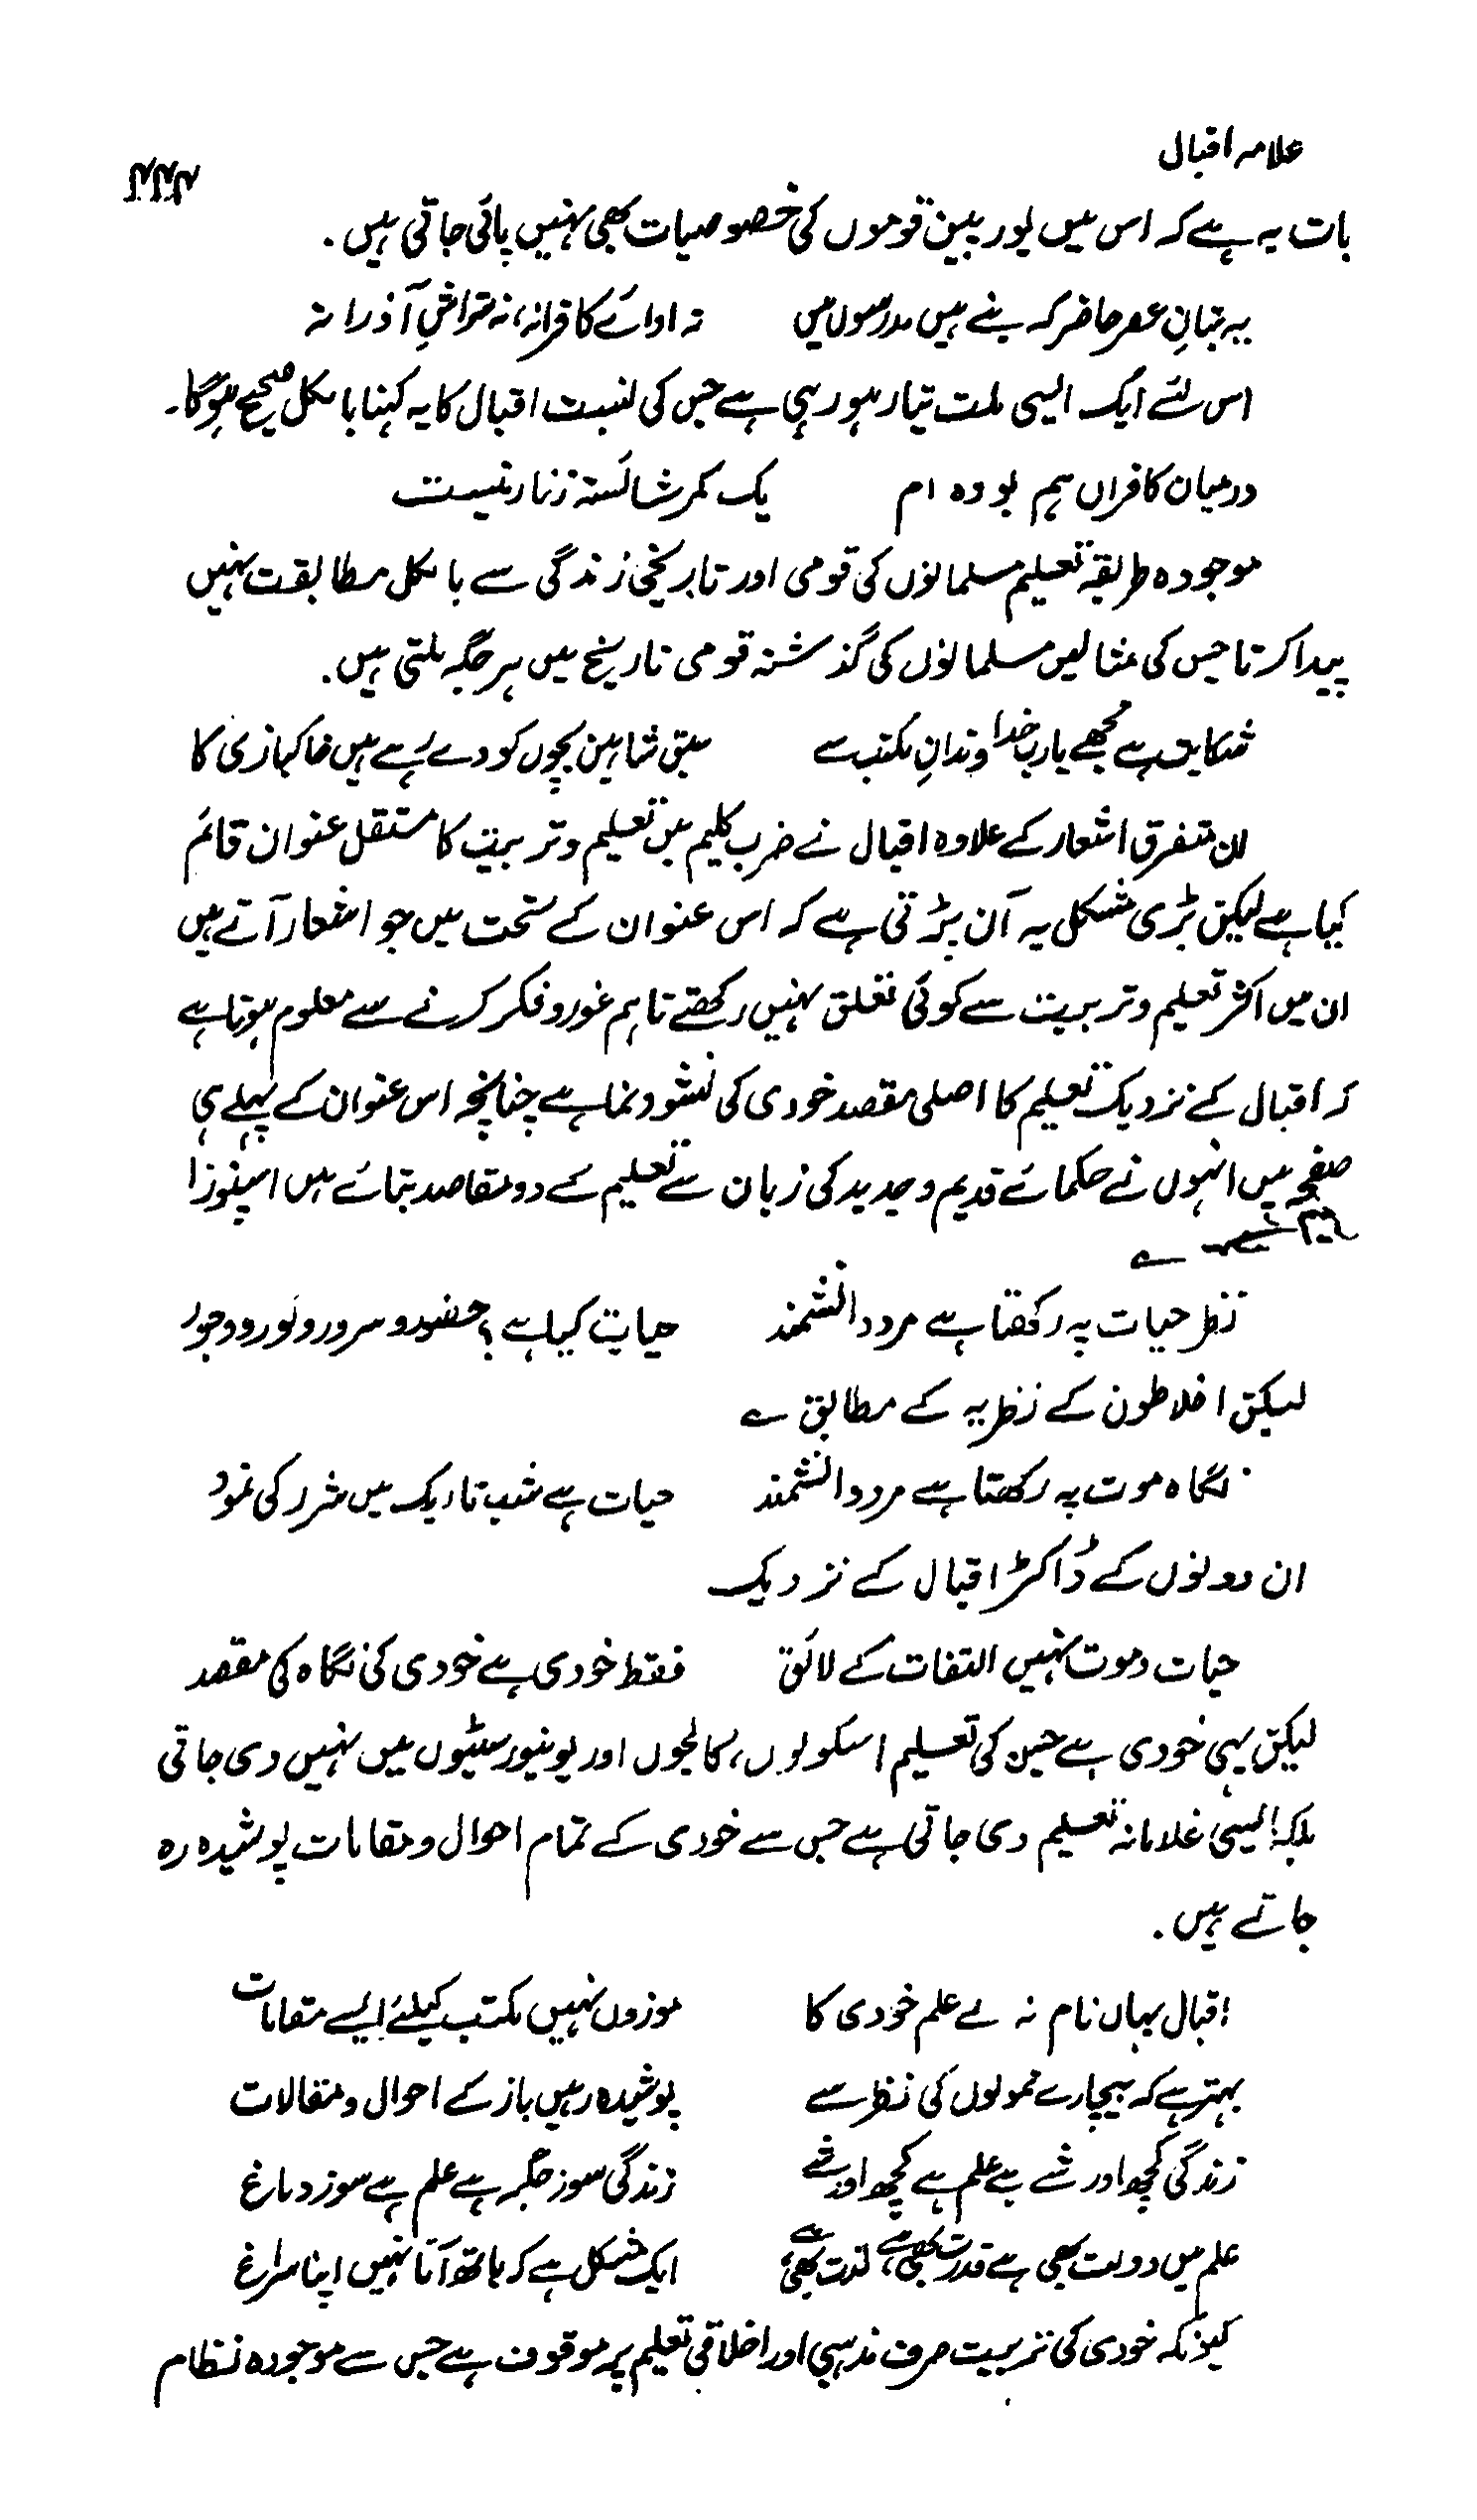 علامہ اقبال
بات یہ ہے کہ اس میں یورپین قوموں کی خصوصیات بھی نہیں پائی جاتی ہیں۔
یہ بتانِ عصر حاضر کہ بنے ہیں مدرسوں میں نہ ادائے کافرانہ، نہ تراشِ آذرانہ
اس لئے ایک ایسی ملت تیار ہو رہی ہے جس کی نسبت اقبال کا یہ کہنا بالکل صحیح ہوگا۔
درمیان کافراں ہم بودہ ام یک کمر شائستہ زنار نیست
موجودہ طریقہ تعلیم مسلمانوں کی قومی اور تاریخی زندگی سے بالکل مطابقت نہیں
پیدا کرتا جس کی مثالیں مسلمانوں کی گذشتہ قومی تاریخ میں ہر جگہ ملتی ہیں۔
شکایت ہے مجھے یارب خداوندانِ مکتب سے سبق شاہین بچوں کو دے رہے ہیں خاکبازی کا
ان متفرق اشعار کے علاوہ اقبال نے ضرب کلیم میں تعلیم و تربیت کا مستقل عنوان قائم
کیا ہے لیکن بڑی مشکل یہ آن پڑتی ہے کہ اس عنوان کے تحت میں جو اشعار آتے ہیں
ان میں اکثر تعلیم و تربیت سے کوئی تعلق نہیں رکھتے تاہم غور و فکر کرنے سے معلوم ہوتا ہے
کہ اقبال کے نزدیک تعلیم کا اصلی مقصد خودی کی نشو و نما ہے چنانچہ اس عنوان کے پہلے ہی
صفحہ میں انہوں نے حکمائے قدیم و جدید کی زبان سے تعلیم کے دو مقاصد بتائے ہیں اسپنوزا
نظر حیات پہ رکھتا ہے مرد دانشمند حیات کیا ہے؟ حضور و سرور و نور و وجود
لیکن افلاطون کے نظریہ کے مطابق ؎
نگاہ موت پہ رکھتا ہے مرد دانشمند حیات ہے شب تاریک میں شرر کی نمود
ان دونوں کے ڈاکٹر اقبال کے نزدیک
حیات و موت نہیں التفات کے لائق فقط خودی ہے خودی کی نگاہ کی مقصد
لیکن یہی خودی ہے جس کی تعلیم اسکولوں، کالجوں اور یونیورسٹیوں میں نہیں دی جاتی
بلکہ ایسی غلامانہ تعلیم دی جاتی ہے جس سے خودی کے تمام احوال و مقامات پوشیدہ رہ
جاتے ہیں۔
اقبال یہاں نام نہ لے علم خودی کا موزوں نہیں مکتب کیلئے ایسے مقامات
بہتر ہے کہ بیچارے ممولوں کی نظر سے پوشیدہ رہیں باز کے احوال و مقالات
زندگی کچھ اور شے ہے علم ہے کچھ اور شے زندگی سوز جگر ہے علم ہے سوز دماغ
علم میں دولت بھی ہے قدرت بھی ہے، لذت بھی ہے ایک مشکل ہے کہ ہاتھ آتا نہیں اپنا سراغ
کیونکہ خودی کی تربیت صرف مذہبی اور اخلاقی تعلیم پر موقوف ہے جس سے موجودہ نظام